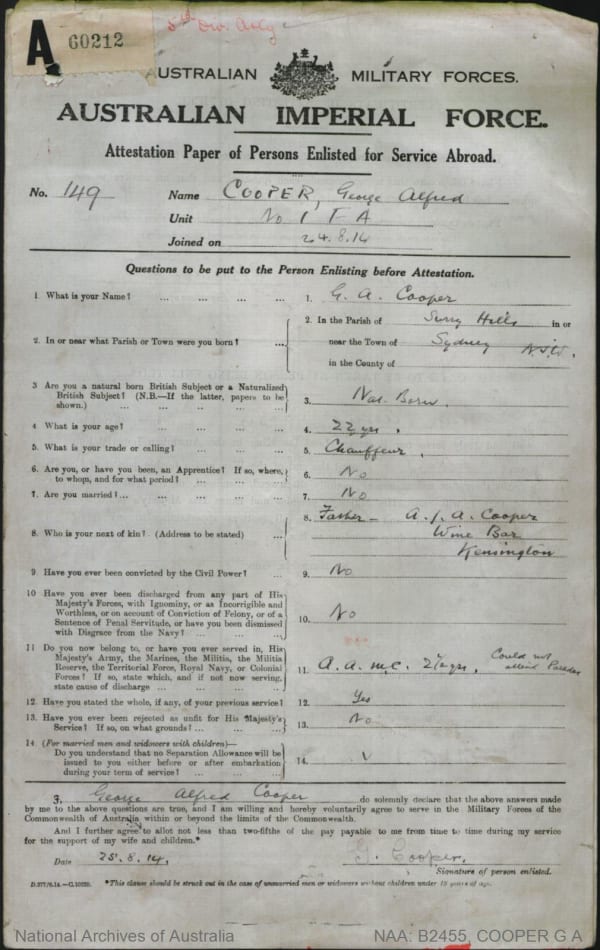 A 60212
5th Div. Arty
AUSTRALIAN MILITARY FORCES.
AUSTRALIAN IMPERIAL FORCE.
Attestation Paper of Persons Enlisted for Service Abroad.
No. 149 Name COOPER, George Alfred
Unit No 1 F A
Joined on 24.8.14
Questions to be put to the Person Enlisting before Attestation.
1. What is your Name? ... ... ... ... 1. G. A. Cooper
2. In the Parish of Surry Hills in or
2. In or near what Parish or Town were you born? ... near the Town of Sydney N.S.W.
in the County of
3 Are you a natural born British Subject or a Naturalized
British Subject? (N.B.—If the latter, papers to be
shown.) ... ... ... ... 3. Nat. Born
4. What is your age? ... ... ... ... 4. 22 yrs.
5. What is your trade or calling? ... ... ... 5. Chauffeur.
6. Are you, or have you been, an Apprentice? If so, where,
to whom, and for what period? ... ... ... 6. No
7. Are you married? ... ... ... ... 7. No
8. Father - A. J. A. Cooper
8. Who is your next of kin? (Address to be stated) ... Wine Bar
Kensington
9 Have you ever been convicted by the Civil Power? ... 9. No
10 Have you ever been discharged from any part of His
Majesty's Forces, with Ignominy, or as Incorrigible and
Worthless, or on account of Conviction of Felony, or of a
Sentence of Penal Servitude, or have you been dismissed
with Disgrace from the Navy? ... ... ... 10. No
11 Do you now belong to, or have you ever served in, His
Majesty's Army, the Marines, the Militia, the Militia
Reserve, the Territorial Force, Royal Navy, or Colonial
Forces? If so, state which, and if not now serving,
state cause of discharge ... ... ... 11. A.A.M.C. yrs, Could not attend Parades
12. Have you stated the whole, if any, of your previous service? 12. Yes
13. Have you ever been rejected as unfit for His Majesty's
Service? If so, on what grounds? ... ... 13. No
14. (For married men and widowers with children)—
Do you understand that no Separation Allowance will be
issued to you either before or after embarkation
during your term of service? ... ... ... 14.
I, George Alfred Cooper do solemnly declare that the above answers made
by me to the above questions are true, and I am willing and hereby voluntarily agree to serve in the Military Forces of the
Commonwealth of Australia within or beyond the limits of the Commonwealth.
And I further agree to allot not less than two-fifths of the pay payable to me from time to time during my service
for the support of my wife and children.*
Date 25.8.14. G. Cooper.
Signature of person enlisted.
D.377/8.14.—C.10239. *This clause should be struck out in the case of unmarried men or widowers without children under 18 years of age.
National Archives of Australia NAA: B2455, COOPER G A